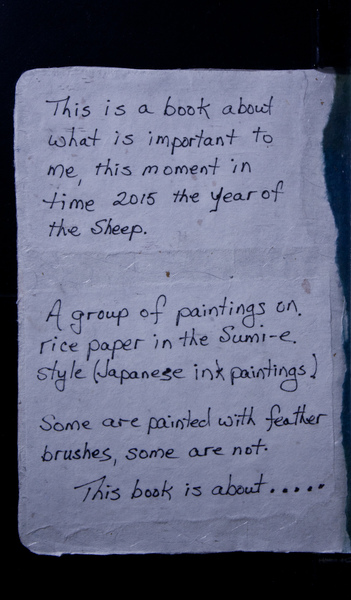 This is a book about
what is important to
me, this moment in
time 2015 the year of
the Sheep.
A group of paintings on
rice paper in the Sumi-e
style (Japanese ink paintings)
Some are painted with feather
brushes, some are not.
This book is about.....